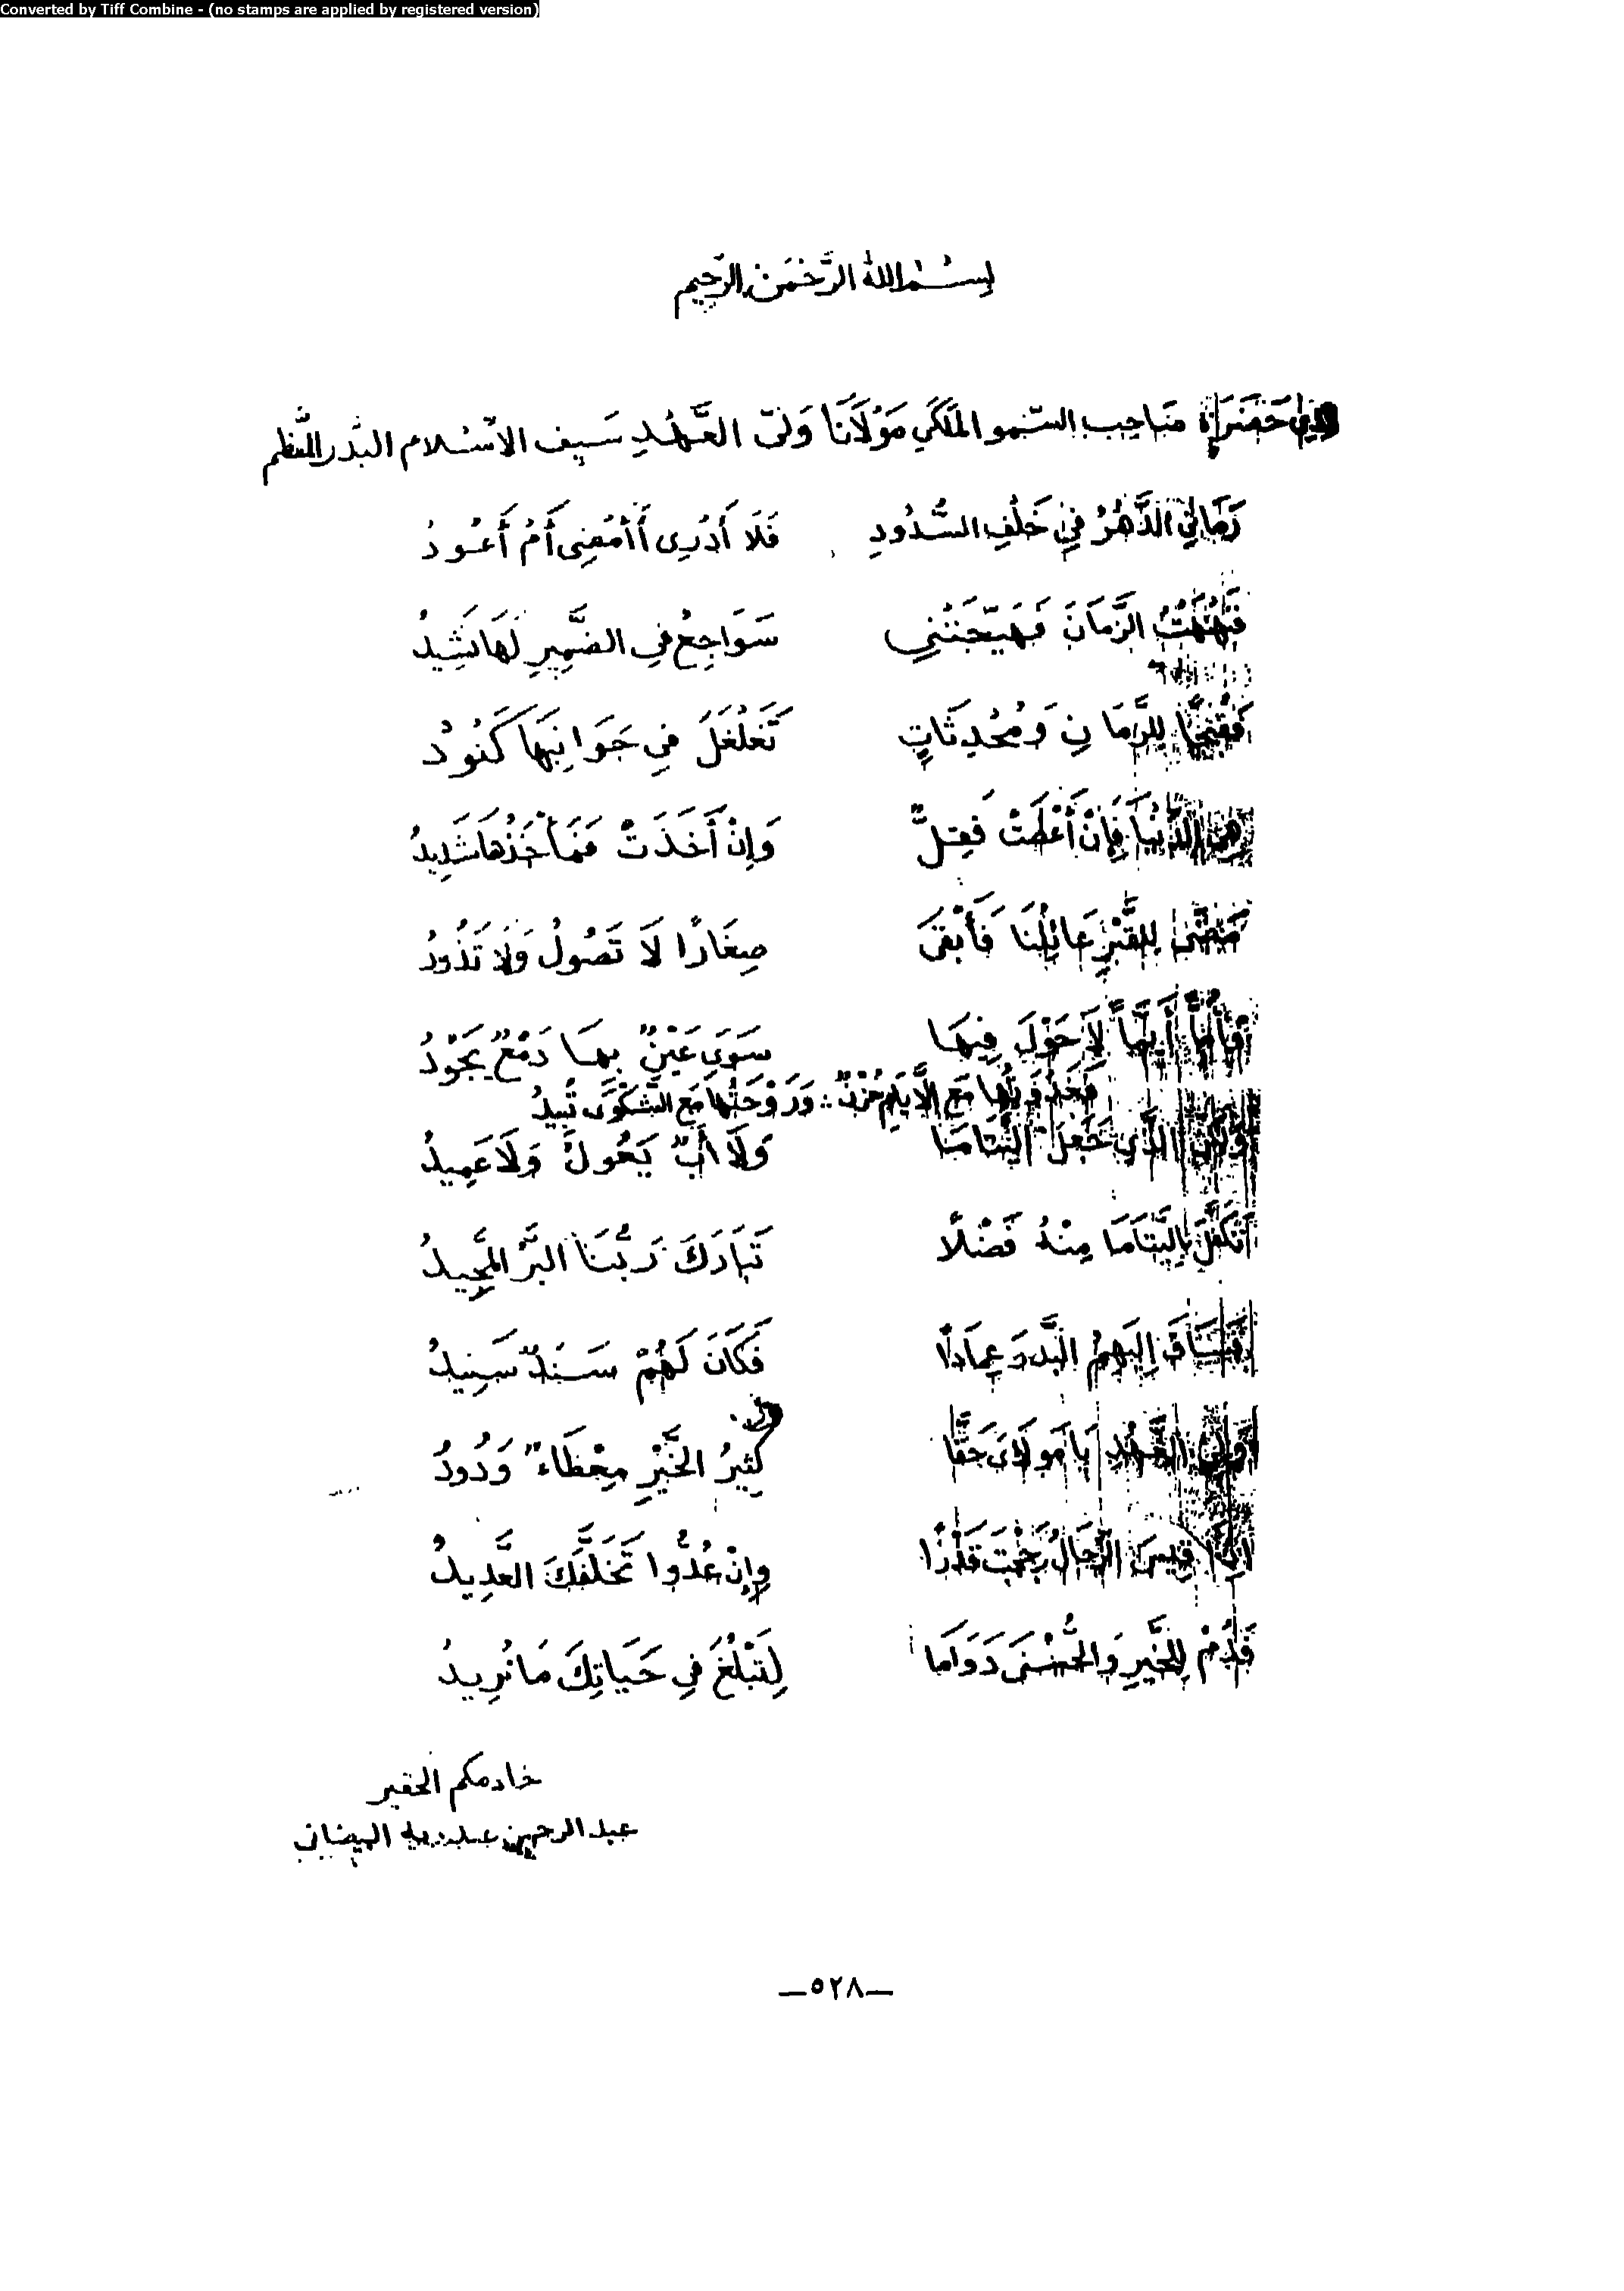 Converted by Tiff Combine - (no stamps are applied by registered version)
بِسْمِ اللهِ الرَّحْمَنِ الرَّحِيم
إلى حَضْرَةِ صَاحِب السُّمو المَلَكي مَوْلَانَا وَلِيّ العَهْدِ سَيف الاسْلام البَدْر المعَظم
رَمَانِي الدَّهْرُ فِي خَلْفِ السُّدُودِ فَلَا أَدْرِى أَأَمْضِى أَمْ أَعُودُ
الزَّمَانَ فَهَيَّجَتْنِي سَوَاجِعُ فِي الضَّمِيرِ لَهَا نَشِيدُ
لِلزَّمَانِ وَمُحْدِثَاتٍ تَغَلْغَلَ فِي جَوَانِبِهَا كَنُودُ
هِىَ الدُّنْيَا فَإِنْ أَعْطَتْ فَقِلٌّ وَإِنْ أَخَذَتْ فَمَأْخَذُهَا شَدِيدُ
مَضَى لِلقَبْرِ عَائِلُنَا فَأَبْقَى صِغَارًا لَا تَصُولُ وَلَا تَذُودُ
لَا حَوْلَ فِيهَا سَوَى عَيْنٍ بِهَا دَمْعٌ يَجُودُ
مَعَ الأَيَّامِ حُزْنٌ ∴ مَعَ الشَّكْوَى تَبِيدُ
الَّذِي جَعَلَ اليَتَامَا وَلَا أَبٌ يَعُولُ وَلَا عَمِيدُ
تَكَفَّلَ بِاليَتَامَا مِنْهُ فَضْلًا تَبَارَكَ رَبُّنَا البَرُّ المَجِيدُ
فَسَاقَ إِلَيْهِمُ البَدْرَ عِمَادًا فَكَانَ لَهُمْ سَنَدٌ سَنِيدُ
وَلِىَّ العَهْدِ يَا مَولَاىَ حَقًّا كَثِيرُ الخَيْرِ مِعْطَاءٌ وَدُودُ
إِذَا قِيسَ الرِّجَالُ رَجَحْتَ قَدْرًا وَإِنْ عُدُّوا تَخَلَّفَكَ العَدِيدُ
فَدُمْ لِلْخَيْرِ وَالحُسْنَى دَوَامَا لِتَبْلُغَ فِي حَيَاتِكَ مَا تُرِيدُ
خادمكم الحقير
عبد الرحمن البيضانى
—٥٢٨—